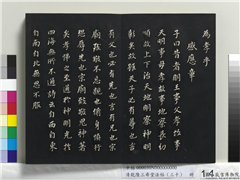 為孝乎
感應章
子曰昔者明王事父孝故事
天明事母孝故事地察長幼
順故上下治天地明察神明
彰矣故雖天子必有尊也言
有父也必有先也言有兄也宗
廟致敬不忘親也修身慎行
恐辱先也宗廟致敬鬼神著
矣孝悌之至通於神明光於
四海無所不通詩云自西自東
自南自北無思不服
清乾隆三希堂法帖（三十） 冊